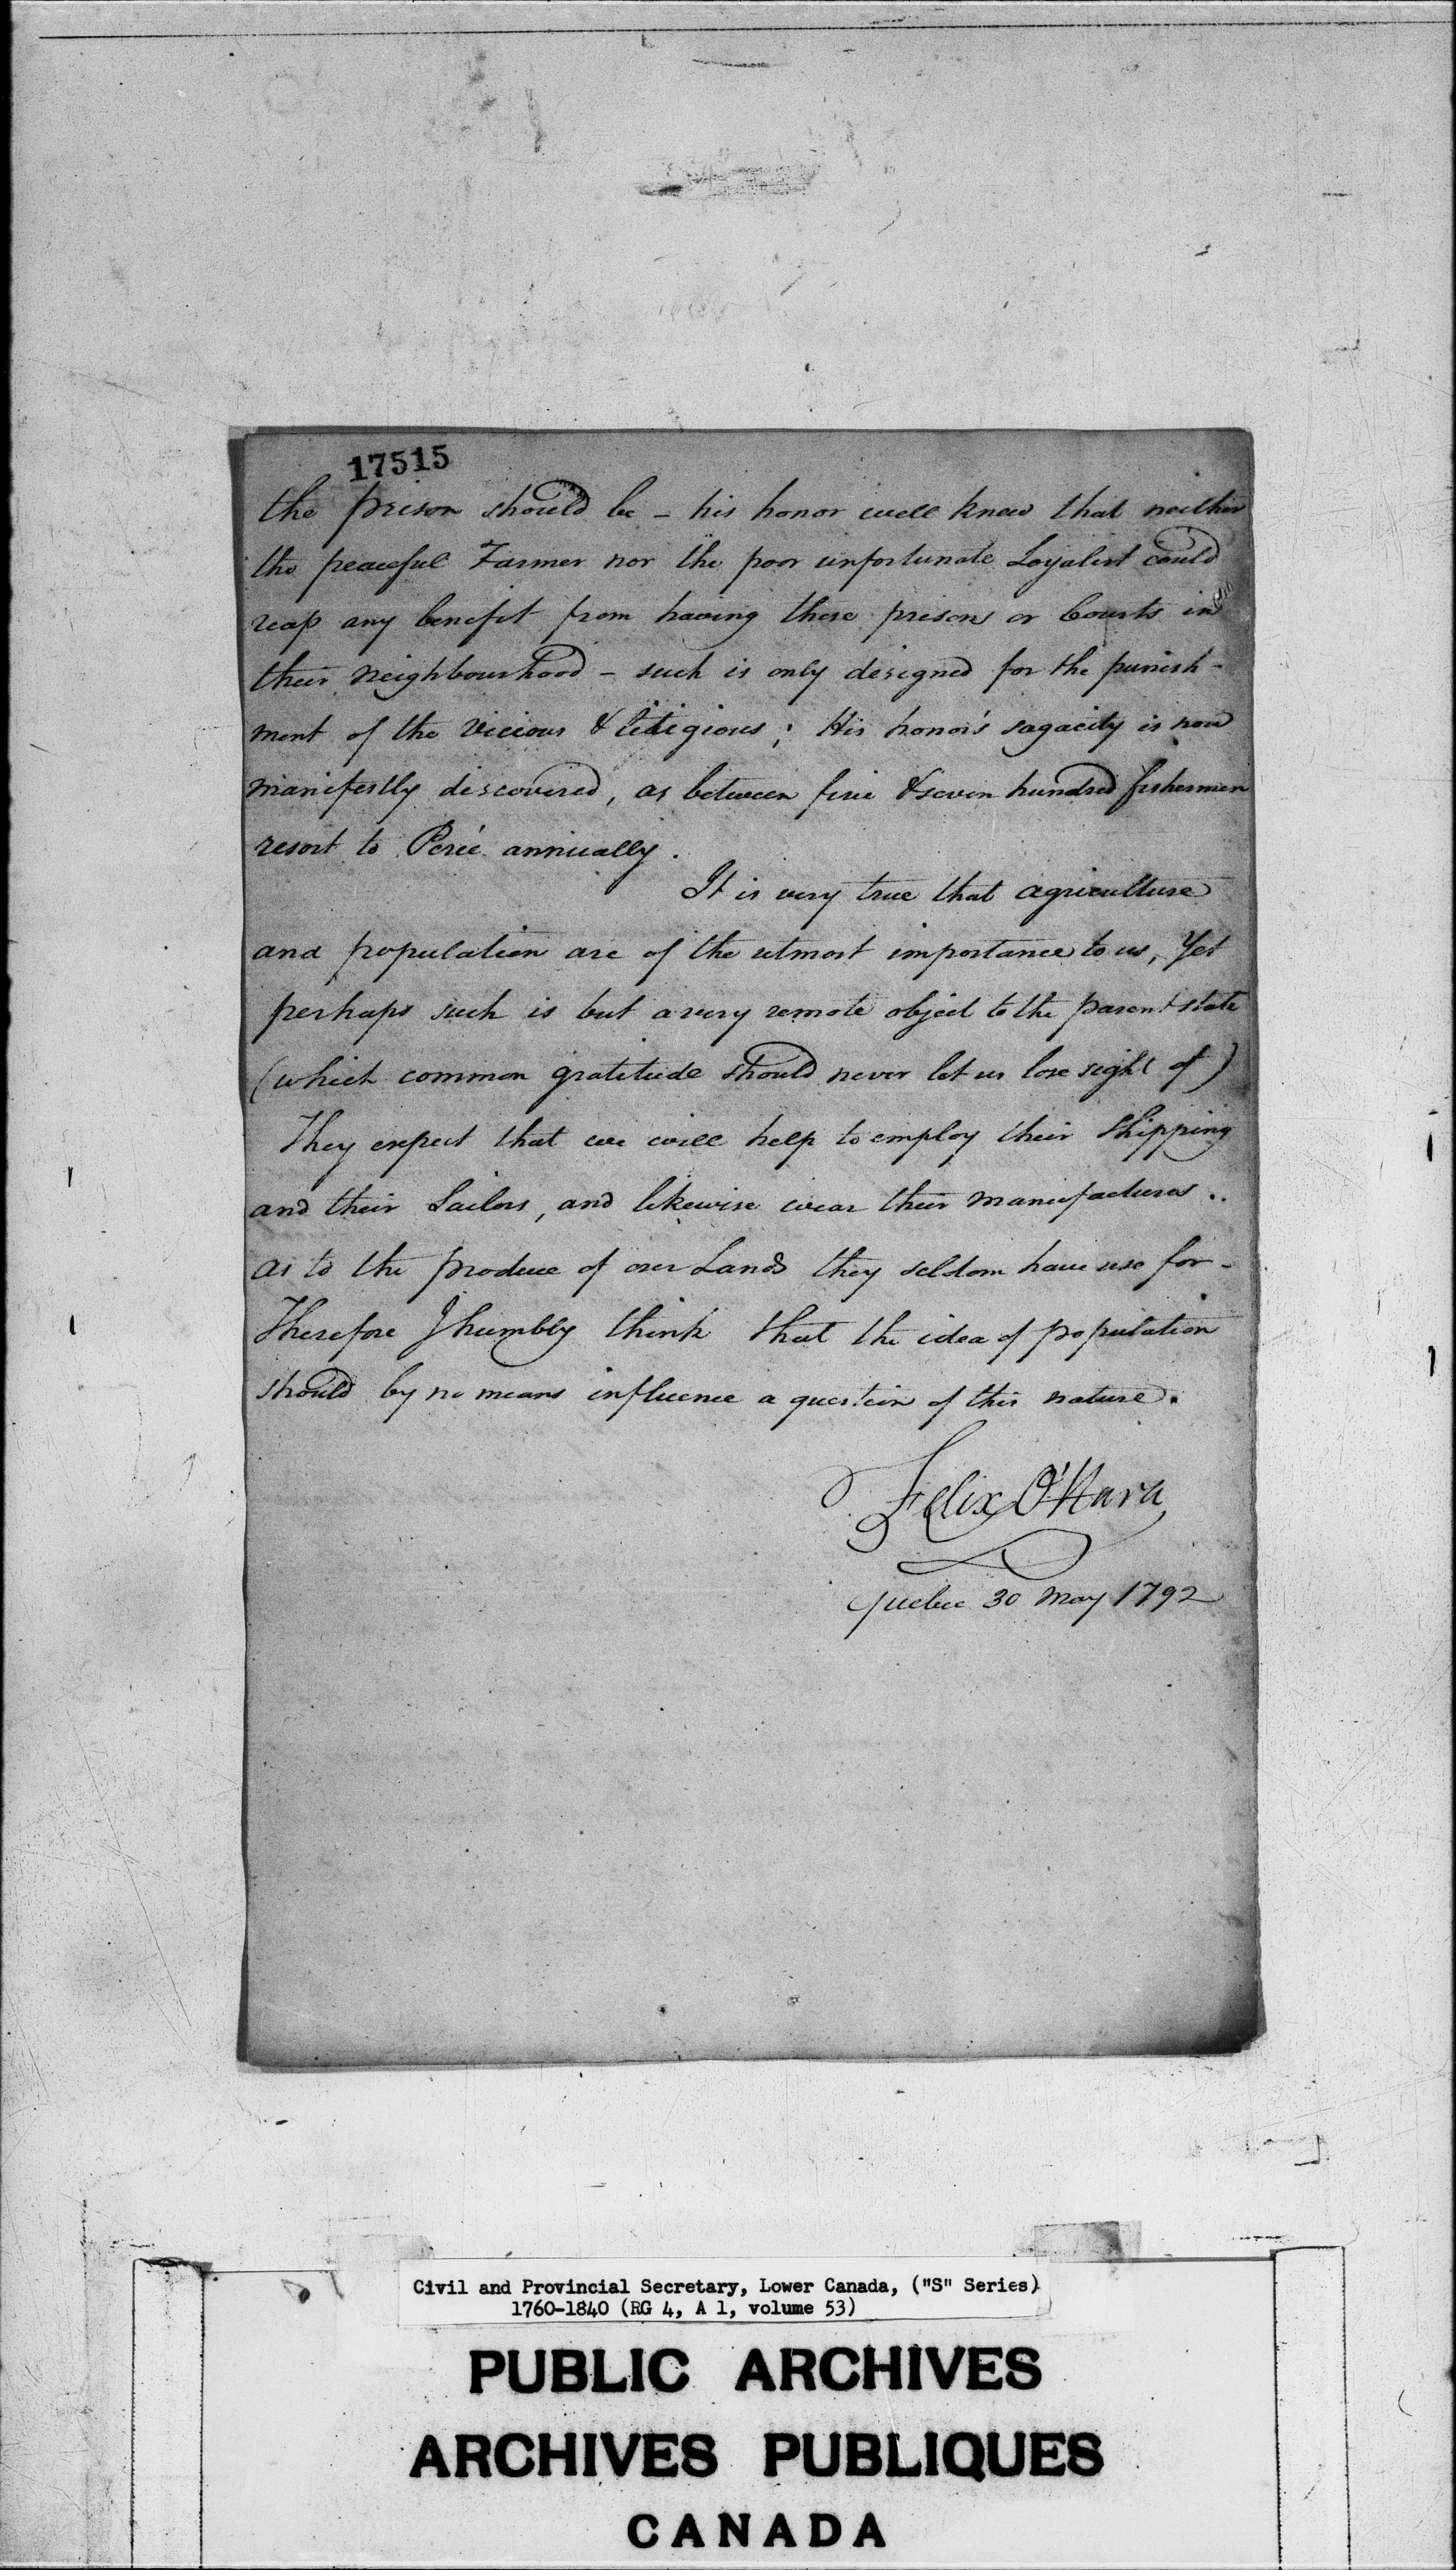 17515
the prison should be - his honor well knew that neither
the peaceful Farmer nor the poor unfortunate Loyalist could
reap any benefit from having these prisons or Courts in
their neighbourhood - such is only designed for the punish-
ment of the Vicious & litigious; His honor's sagacity is now
manifestly discovered, as between five & seven hundred fishermen
resort to Percé annually.
It is very true that agriculture
and population are of the utmost importance to us, Yet
perhaps such is but a very remote object to the parent state
(which common gratitude should never let us lose sight of)
They expect that we will help to employ their Shipping
and their Sailors, and likewise wear their manufactures ..
as to the produce of our Lands they seldom have use for -
Therefore I humbly think that the idea of population
should by no means influence a question of this nature.
Felix O'Hara
Quebec 30 May 1792
Civil and Provincial Secretary, Lower Canada, ("S" Series)
1760-1840 (RG 4, A 1, volume 53)
PUBLIC ARCHIVES
ARCHIVES PUBLIQUES
CANADA